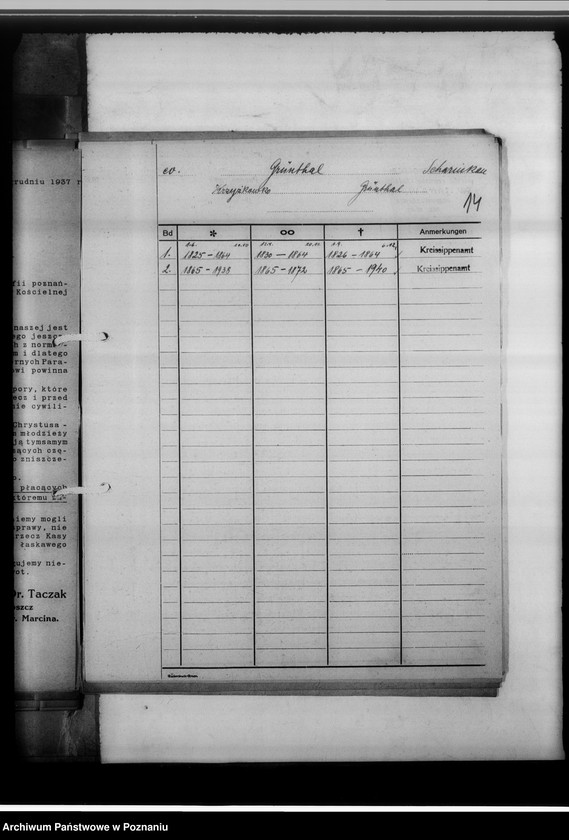 grudniu 1937 r
fii poznań-
Kościelnej
naszej jest
ego jeszcze
h z norma-
m i dlatego
rnych Para-
wi powinna
pory, które
ecz i przed
ie cywili-
Chrystusa -
młodzieży
ją tymsamym
zniszcze-
płacących
któremu
iemy mogli
prawy, nie
rzecz Kasy
łaskawego
ujemy nie-
ot.
Dr. Taczak
oszcz
. Marcina.
ev. Grünthal Scharnikau
Grünthal
14
Bd * oo † Anmerkungen
1. 1825 – 1864 1830 – 1864 1826 – 1864 Kreissippenamt
2. 1865 – 1938 1865 – 1872 1865 – 1940 Kreissippenamt
Archiwum Państwowe w Poznaniu